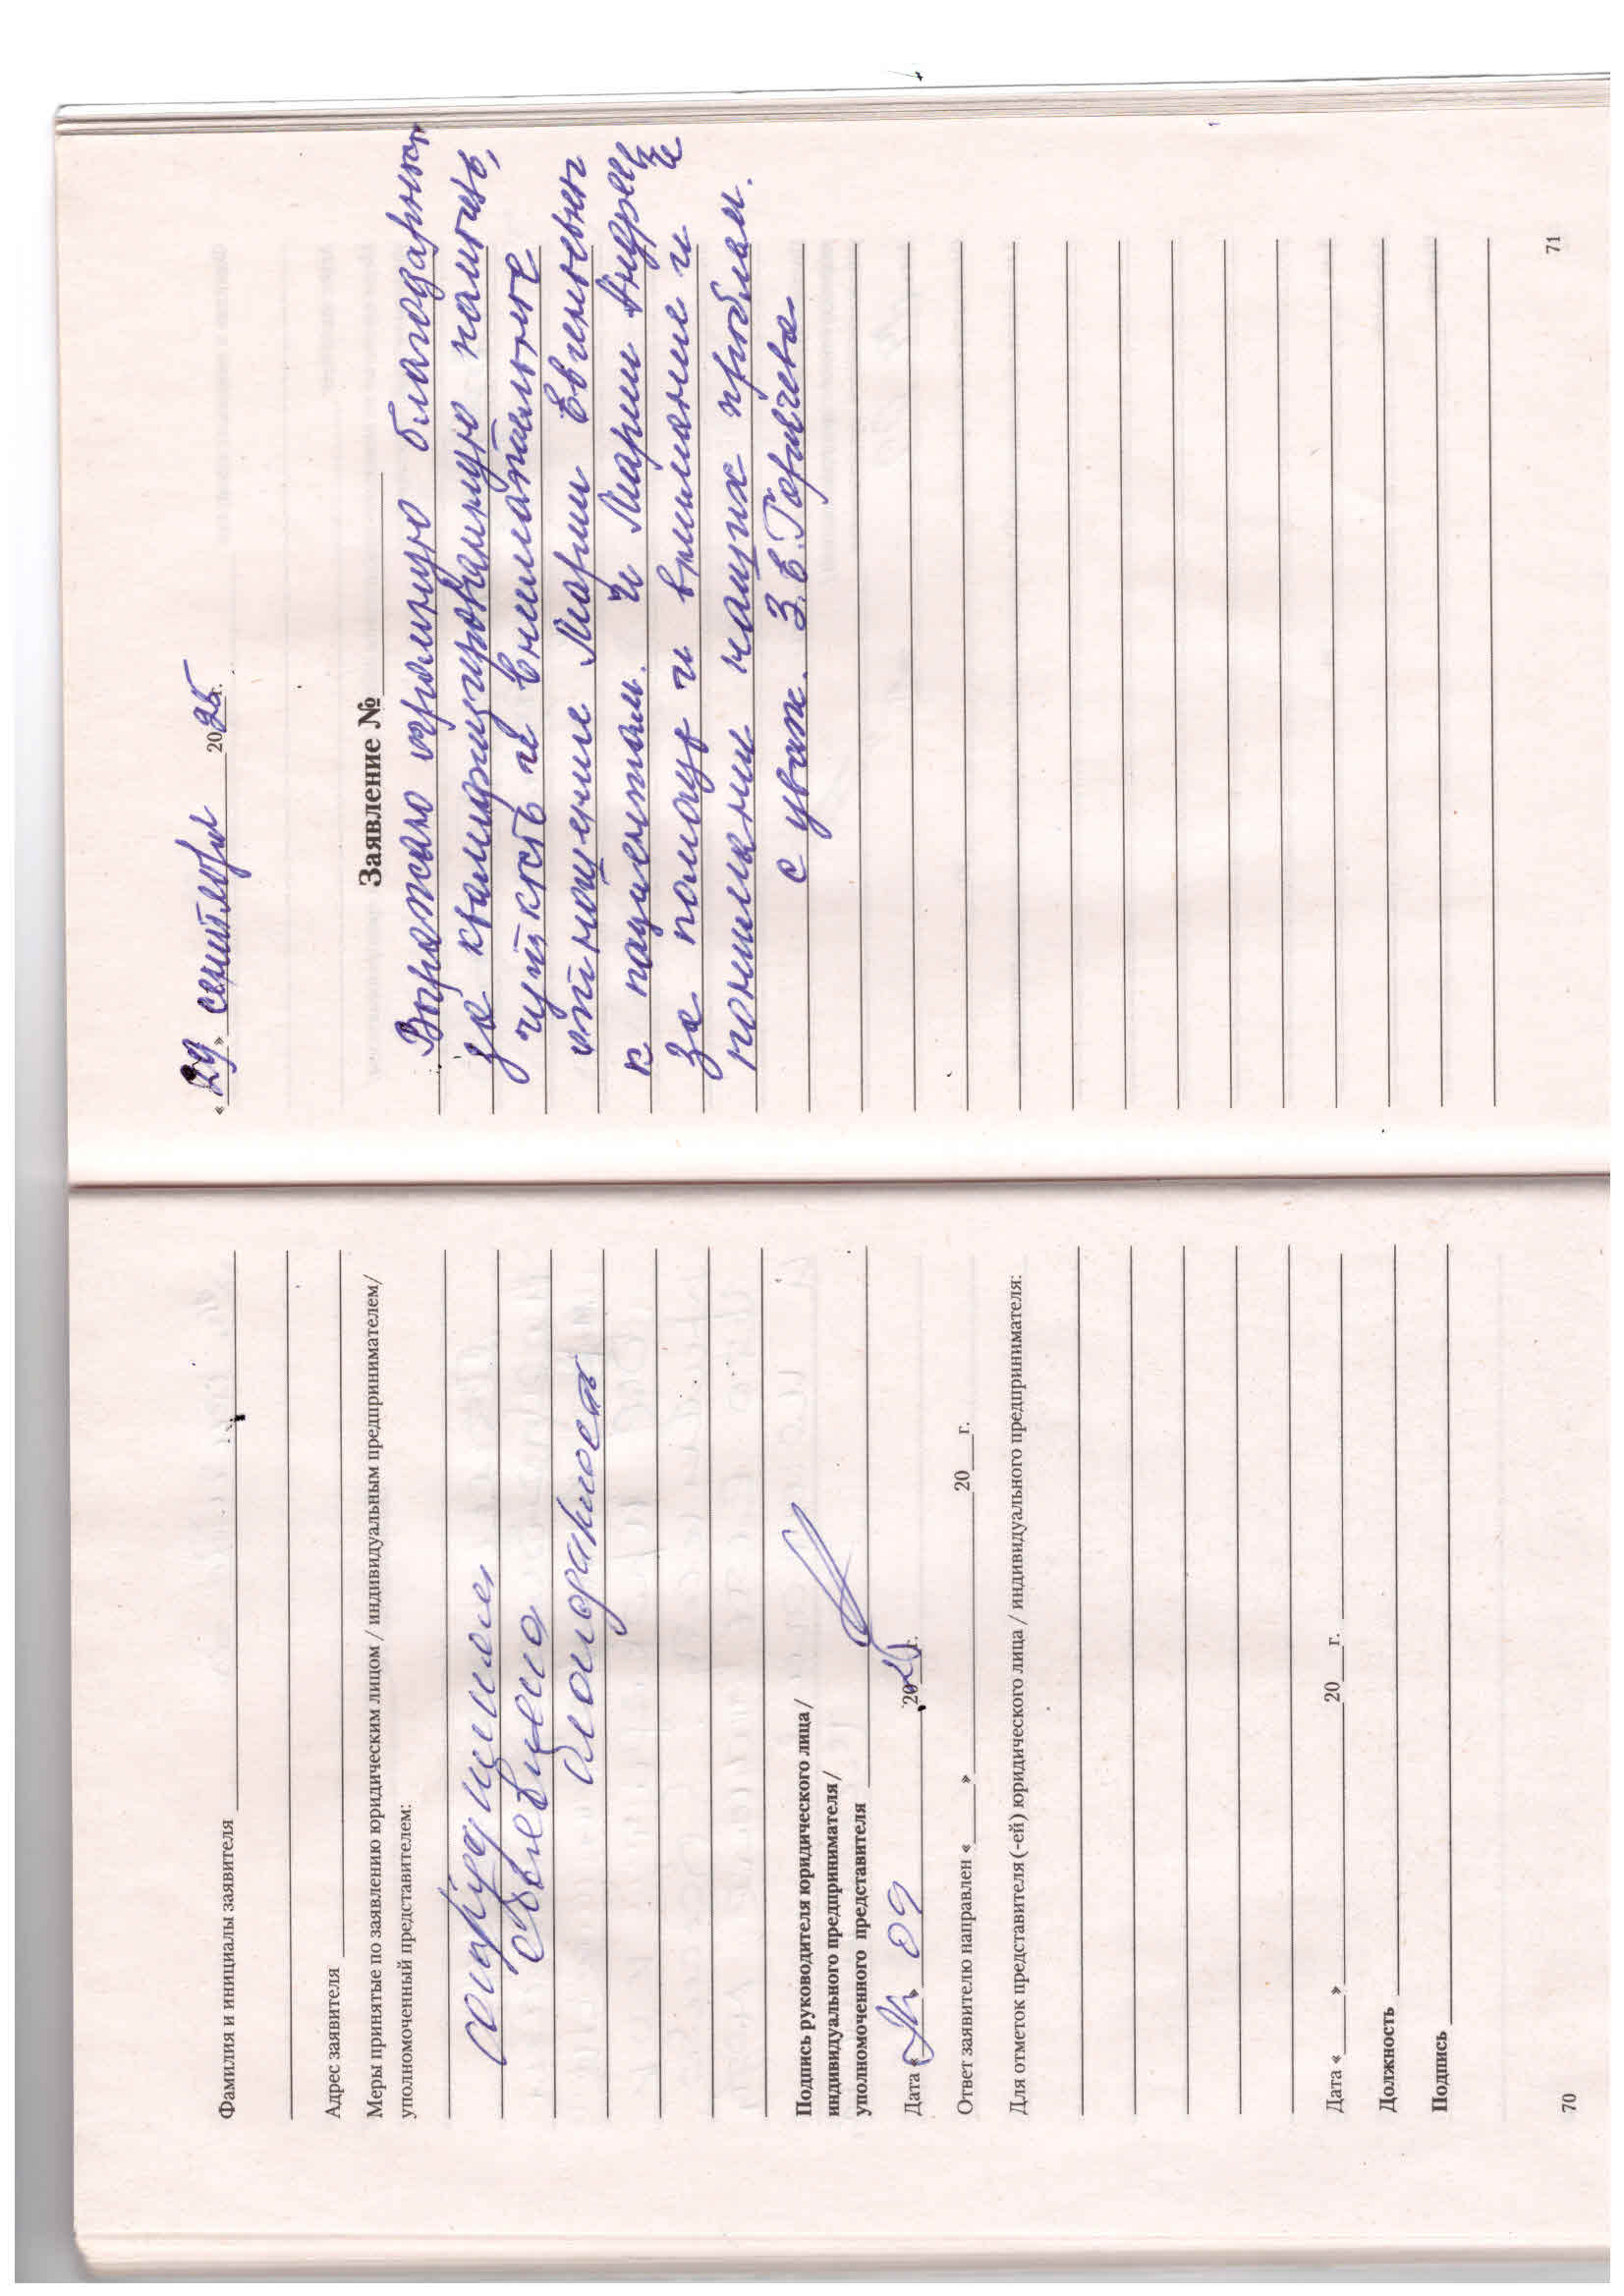 Фамилия и инициалы заявителя
Адрес заявителя
Меры принятые по заявлению юридическим лицом / индивидуальным предпринимателем/
уполномоченный представителем:
сотрудникам
объявлена
благодарность
Подпись руководителя юридического лица /
индивидуального предпринимателя /
уполномоченного представителя
Дата « » 09 2025 г.
Ответ заявителю направлен « » 20 г.
Для отметок представителя (-ей) юридического лица / индивидуального предпринимателя:
Дата « » 20 г.
Должность
Подпись
70
« 29 » сентября 2025 г.
Заявление №
Выражаю огромную благодарность
за квалифицированную помощь,
чуткость и внимательное
отношение Марии Евгеньевны
к пациентам. И Марии Андреевне
за помощь и внимание и
понимании наших проблем.
с уваж. З.Е.
71